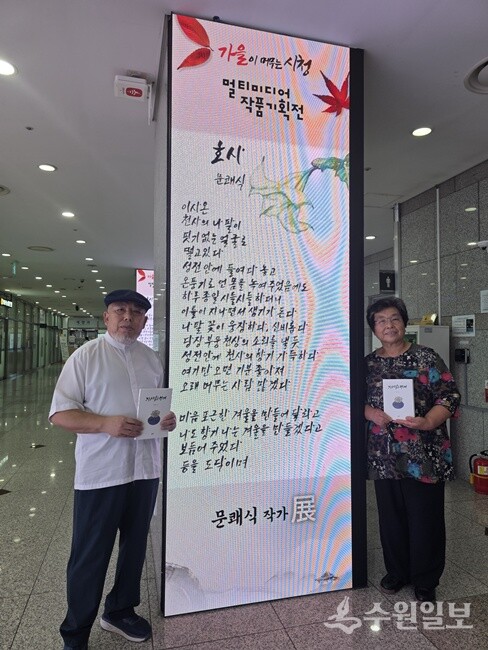 가을이 머무는 시청
멀티미디어
작품기획전
호시
문쾌식
이사온
천사의 나팔이
핏기없는 얼굴로
떨고있다
성전 안에 들여다 놓고
온둥기로 언 몸을 녹여주었음에도
하루종일 시들시들하더니
이틀이 지나면서 생기가 돈다
나팔 꽃이 웅장하다, 신비롭다
당장 부운 천상의 소리를 낼 듯
성전 안에 천사의 향기 가득하다
여기만 오면 기분 좋아져
오래 머무는 사람 많겠다
마음 포근한 겨울을 만들어 달라고
나도 향기 나는 겨울을 만들겠다고
보듬어 주었다
등을 도닥이며
문쾌식 작가 展
수원일보